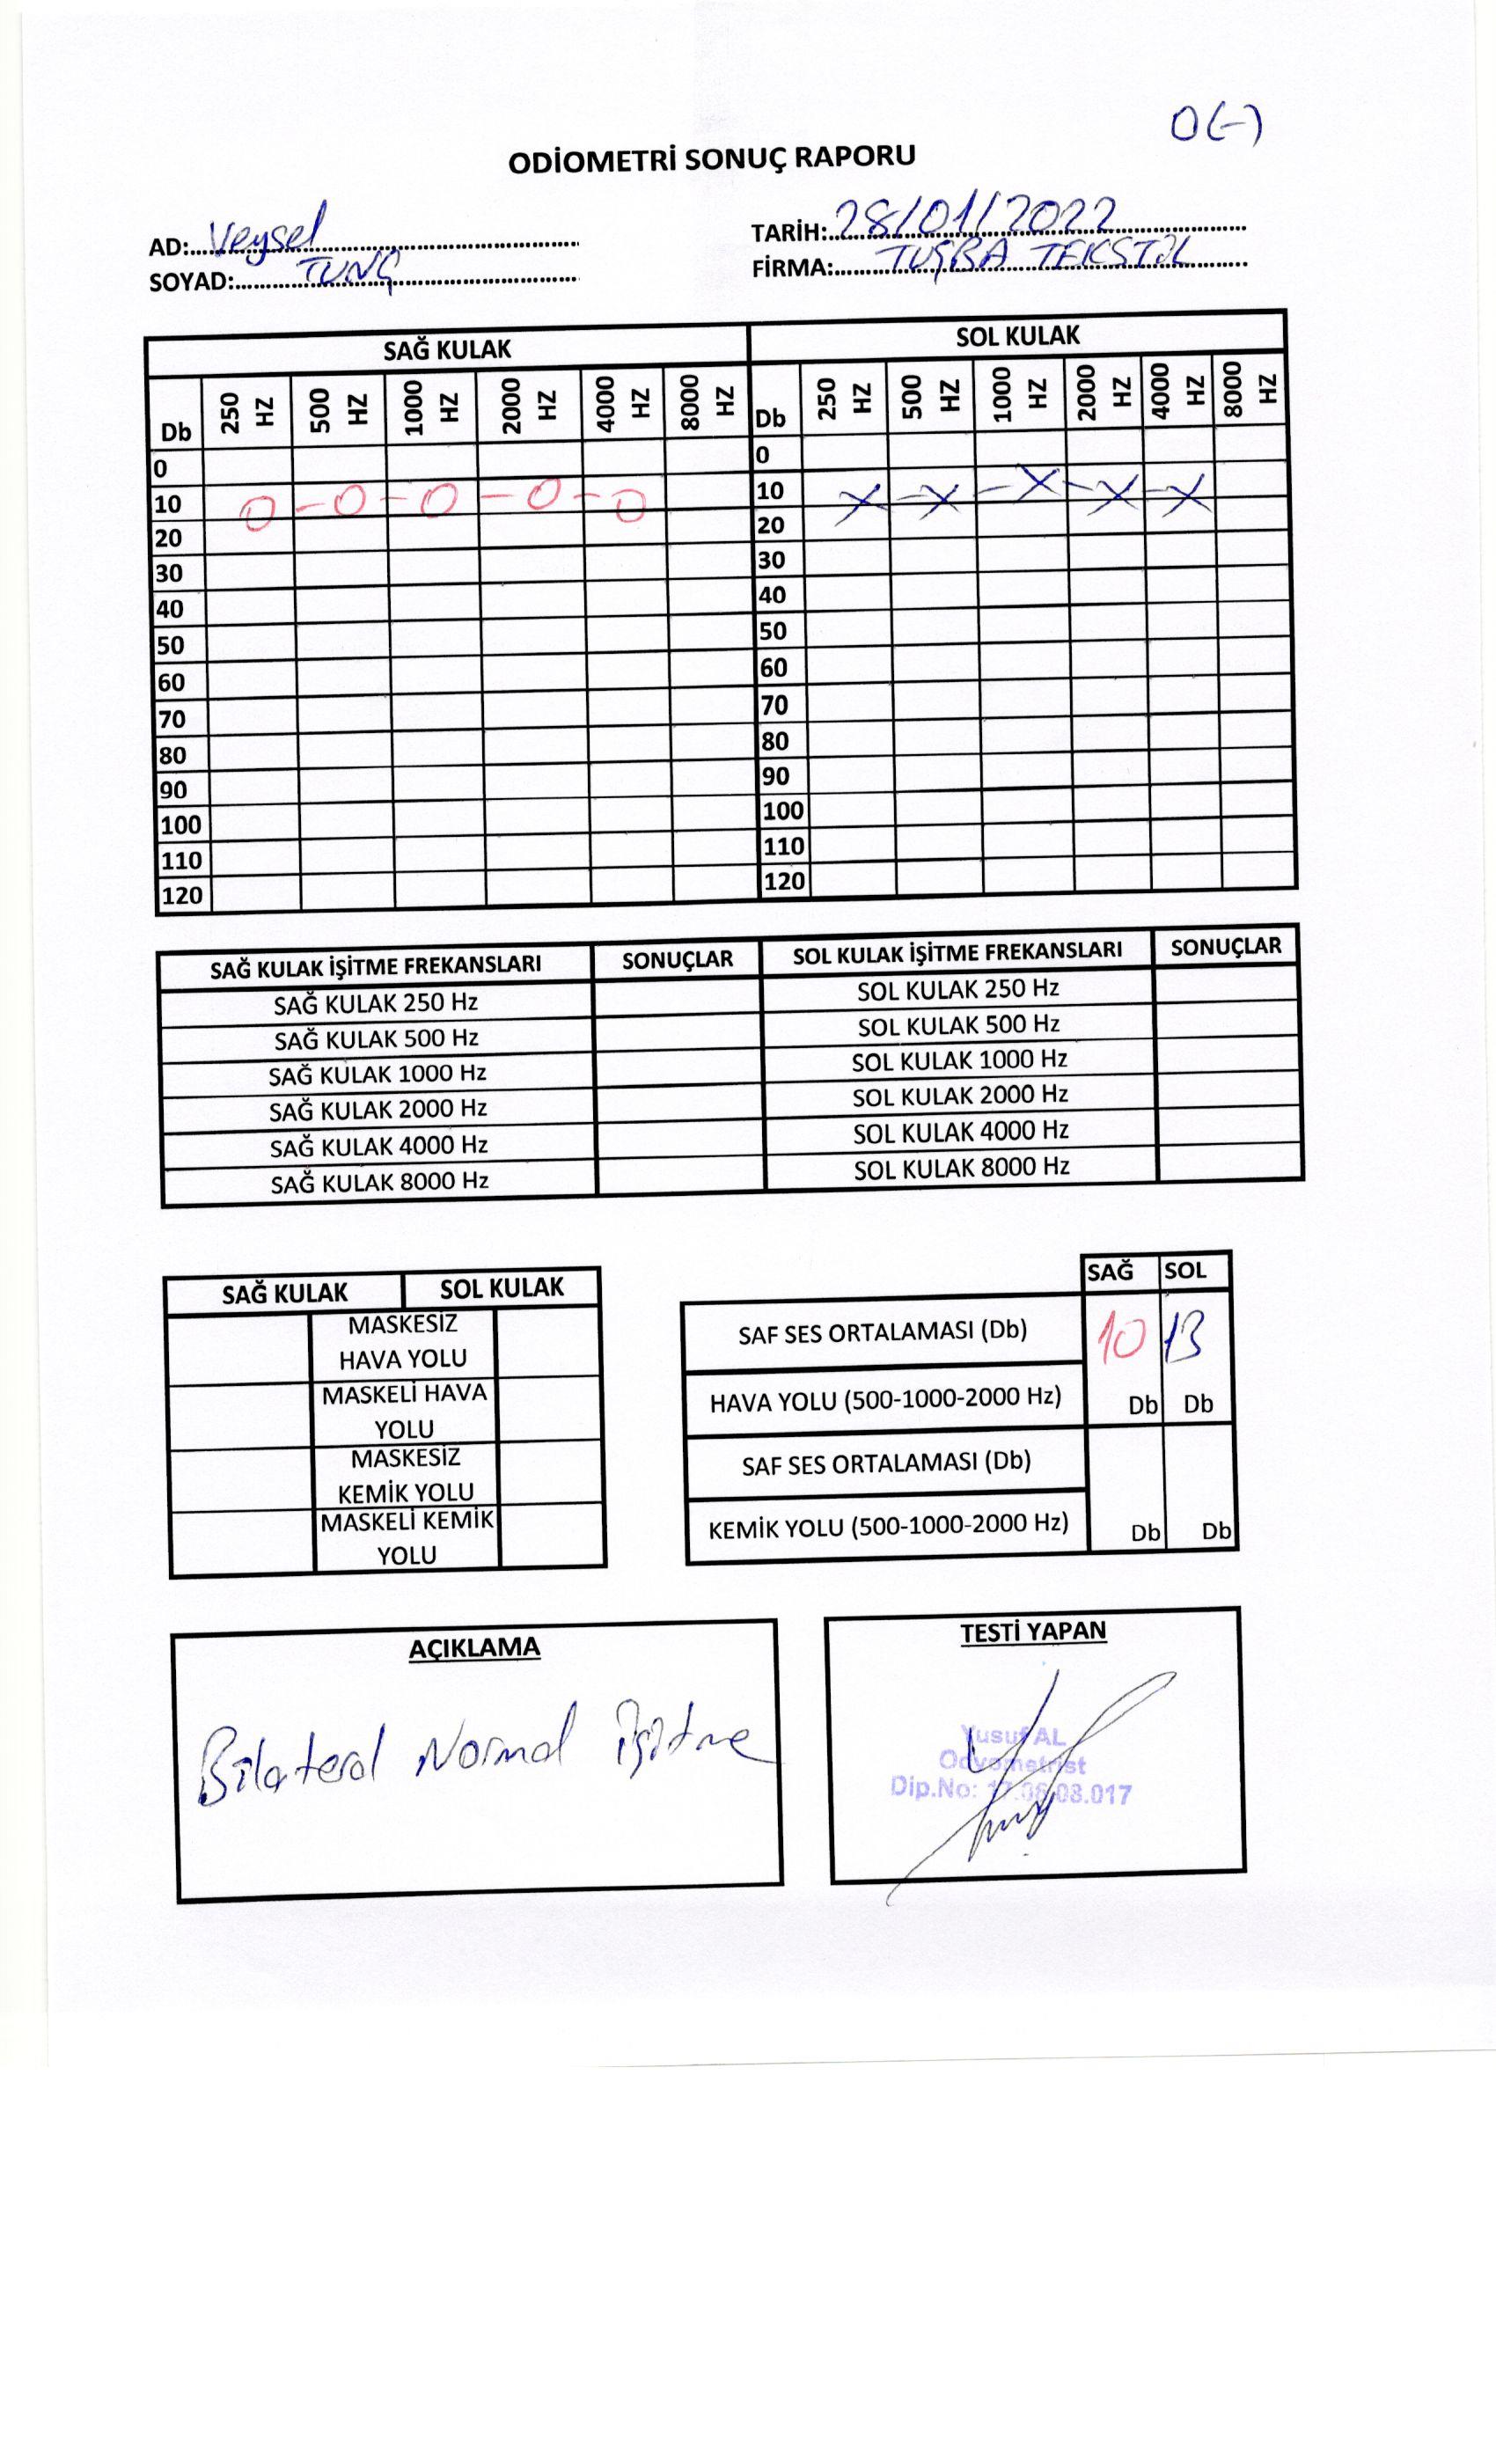 O(-)
ODİOMETRİ SONUÇ RAPORU
AD: Veysel
TARİH: 28/01/2022
SOYAD: TUNÇ
FİRMA: TUŞBA TEKSTİL
SAĞ KULAK SOL KULAK
Db 250 HZ 500 HZ 1000 HZ 2000 HZ 4000 HZ 8000 HZ Db 250 HZ 500 HZ 1000 HZ 2000 HZ 4000 HZ 8000 HZ
0 0
10 O - O - O - O - O 10 X - X - X - X - X
20 20
30 30
40 40
50 50
60 60
70 70
80 80
90 90
100 100
110 110
120 120
SAĞ KULAK İŞİTME FREKANSLARI SONUÇLAR SOL KULAK İŞİTME FREKANSLARI SONUÇLAR
SAĞ KULAK 250 Hz SOL KULAK 250 Hz
SAĞ KULAK 500 Hz SOL KULAK 500 Hz
SAĞ KULAK 1000 Hz SOL KULAK 1000 Hz
SAĞ KULAK 2000 Hz SOL KULAK 2000 Hz
SAĞ KULAK 4000 Hz SOL KULAK 4000 Hz
SAĞ KULAK 8000 Hz SOL KULAK 8000 Hz
SAĞ KULAK SOL KULAK
MASKESİZ
HAVA YOLU
MASKELİ HAVA
YOLU
MASKESİZ
KEMİK YOLU
MASKELİ KEMİK
YOLU
SAĞ SOL
SAF SES ORTALAMASI (Db) 10 13
HAVA YOLU (500-1000-2000 Hz) Db Db
SAF SES ORTALAMASI (Db)
KEMİK YOLU (500-1000-2000 Hz) Db Db
AÇIKLAMA
Bilateral Normal İşitme
TESTİ YAPAN
Yusuf AL
Odyometrist
Dip.No: 17.06.08.017